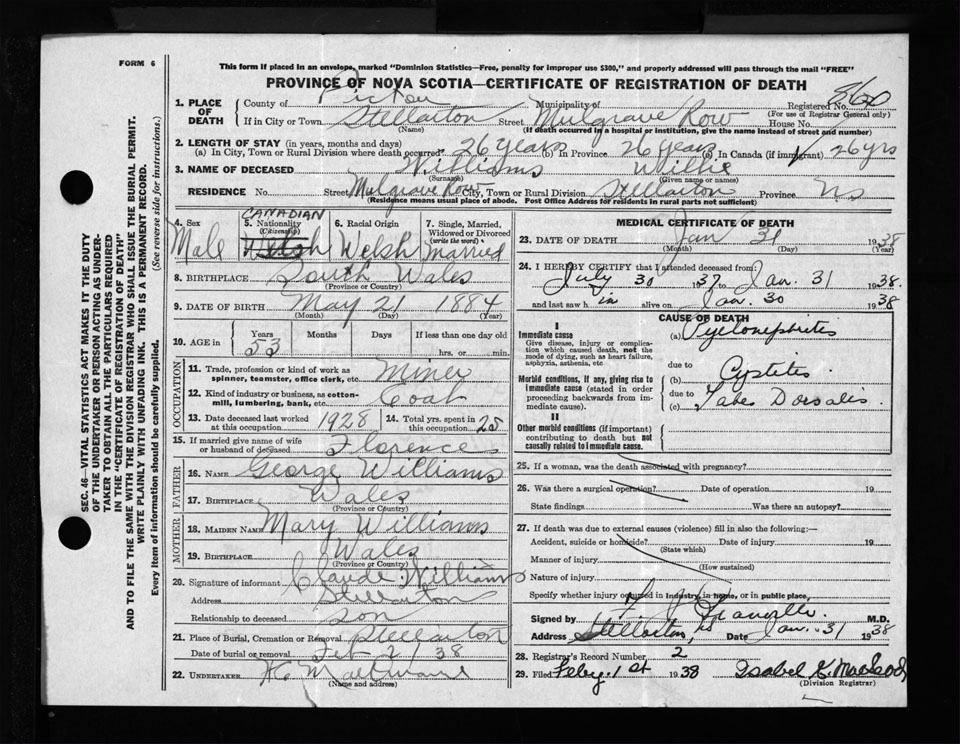 FORM 6
This form if placed in an envelope, marked "Dominion Statistics—Free, penalty for improper use $300," and properly addressed will pass through the mail "FREE"
PROVINCE OF NOVA SCOTIA—CERTIFICATE OF REGISTRATION OF DEATH
SEC. 46—VITAL STATISTICS ACT MAKES IT THE DUTY
OF THE UNDERTAKER OR PERSON ACTING AS UNDER-
TAKER TO OBTAIN ALL THE PARTICULARS REQUIRED
IN THE "CERTIFICATE OF REGISTRATION OF DEATH"
AND TO FILE THE SAME WITH THE DIVISION REGISTRAR WHO SHALL ISSUE THE BURIAL PERMIT.
WRITE PLAINLY WITH UNFADING INK. THIS IS A PERMANENT RECORD.
Every item of information should be carefully supplied. (See reverse side for instructions.)
1. PLACE OF DEATH
County of Pictou Municipality of Registered No. 860
(For use of Registrar General only)
If in City or Town Stellarton Street Mulgrave Row House No.
(Name) (If death occurred in a hospital or institution, give the name instead of street and number)
2. LENGTH OF STAY (in years, months and days)
(a) In City, Town or Rural Division where death occurred 26 years (b) In Province 26 years (c) In Canada (if immigrant) 26 yrs
3. NAME OF DECEASED Williams Willie
(Surname) (Given name or names)
RESIDENCE No. Street Mulgrave Row City, Town or Rural Division Stellarton Province NS
(Residence means usual place of abode. Post Office Address for residents in rural parts not sufficient)
4. Sex Male
5. Nationality (Citizenship) CANADIAN Welsh
6. Racial Origin Welsh
7. Single, Married, Widowed or Divorced (write the word) Married
8. BIRTHPLACE South Wales
(Province or Country)
9. DATE OF BIRTH May 21 1884
(Month) (Day) (Year)
10. AGE in Years 53 Months Days If less than one day old
hrs. or min.
OCCUPATION
11. Trade, profession or kind of work as spinner, teamster, office clerk, etc. Miner
12. Kind of industry or business, as cotton-mill, lumbering, bank, etc. Coal
13. Date deceased last worked at this occupation 1928
14. Total yrs. spent in this occupation 25
15. If married give name of wife or husband of deceased Florence
FATHER
16. NAME George Williams
17. BIRTHPLACE Wales
(Province or Country)
MOTHER
18. MAIDEN NAME Mary Williams
19. BIRTHPLACE Wales
(Province or Country)
20. Signature of informant Claude Williams
Address Stellarton
Relationship to deceased Son
21. Place of Burial, Cremation or Removal Stellarton
Date of burial or removal Feb 2/38
22. UNDERTAKER
(Name and address)
MEDICAL CERTIFICATE OF DEATH
23. DATE OF DEATH Jan 31 1938
(Month) (Day) (Year)
24. I HEREBY CERTIFY that I attended deceased from:
July 30 1937 to Jan. 31 1938.
and last saw him alive on Jan. 30 1938
CAUSE OF DEATH
I
Immediate cause
Give disease, injury or complication which caused death, not the mode of dying, such as heart failure, asphyxia, asthenia, etc
(a) Pyelonephritis
due to
Morbid conditions, if any, giving rise to immediate cause (stated in order proceeding backwards from immediate cause).
(b) Cystitis
due to
(c) Tabes Dorsalis
II
Other morbid conditions (if important) contributing to death but not causally related to immediate cause.
25. If a woman, was the death associated with pregnancy?
26. Was there a surgical operation? Date of operation 19
State findings Was there an autopsy?
27. If death was due to external causes (violence) fill in also the following:—
Accident, suicide or homicide? Date of injury 19
(State which)
Manner of injury
(How sustained)
Nature of injury
Specify whether injury occurred in industry, in home, or in public place,
Signed by M.D.
Address Stellarton, NS Date Jan. 31 1938
28. Registrar's Record Number 2
29. Filed Feby. 1st 1938 Isabel K. MacLeod
(Division Registrar)